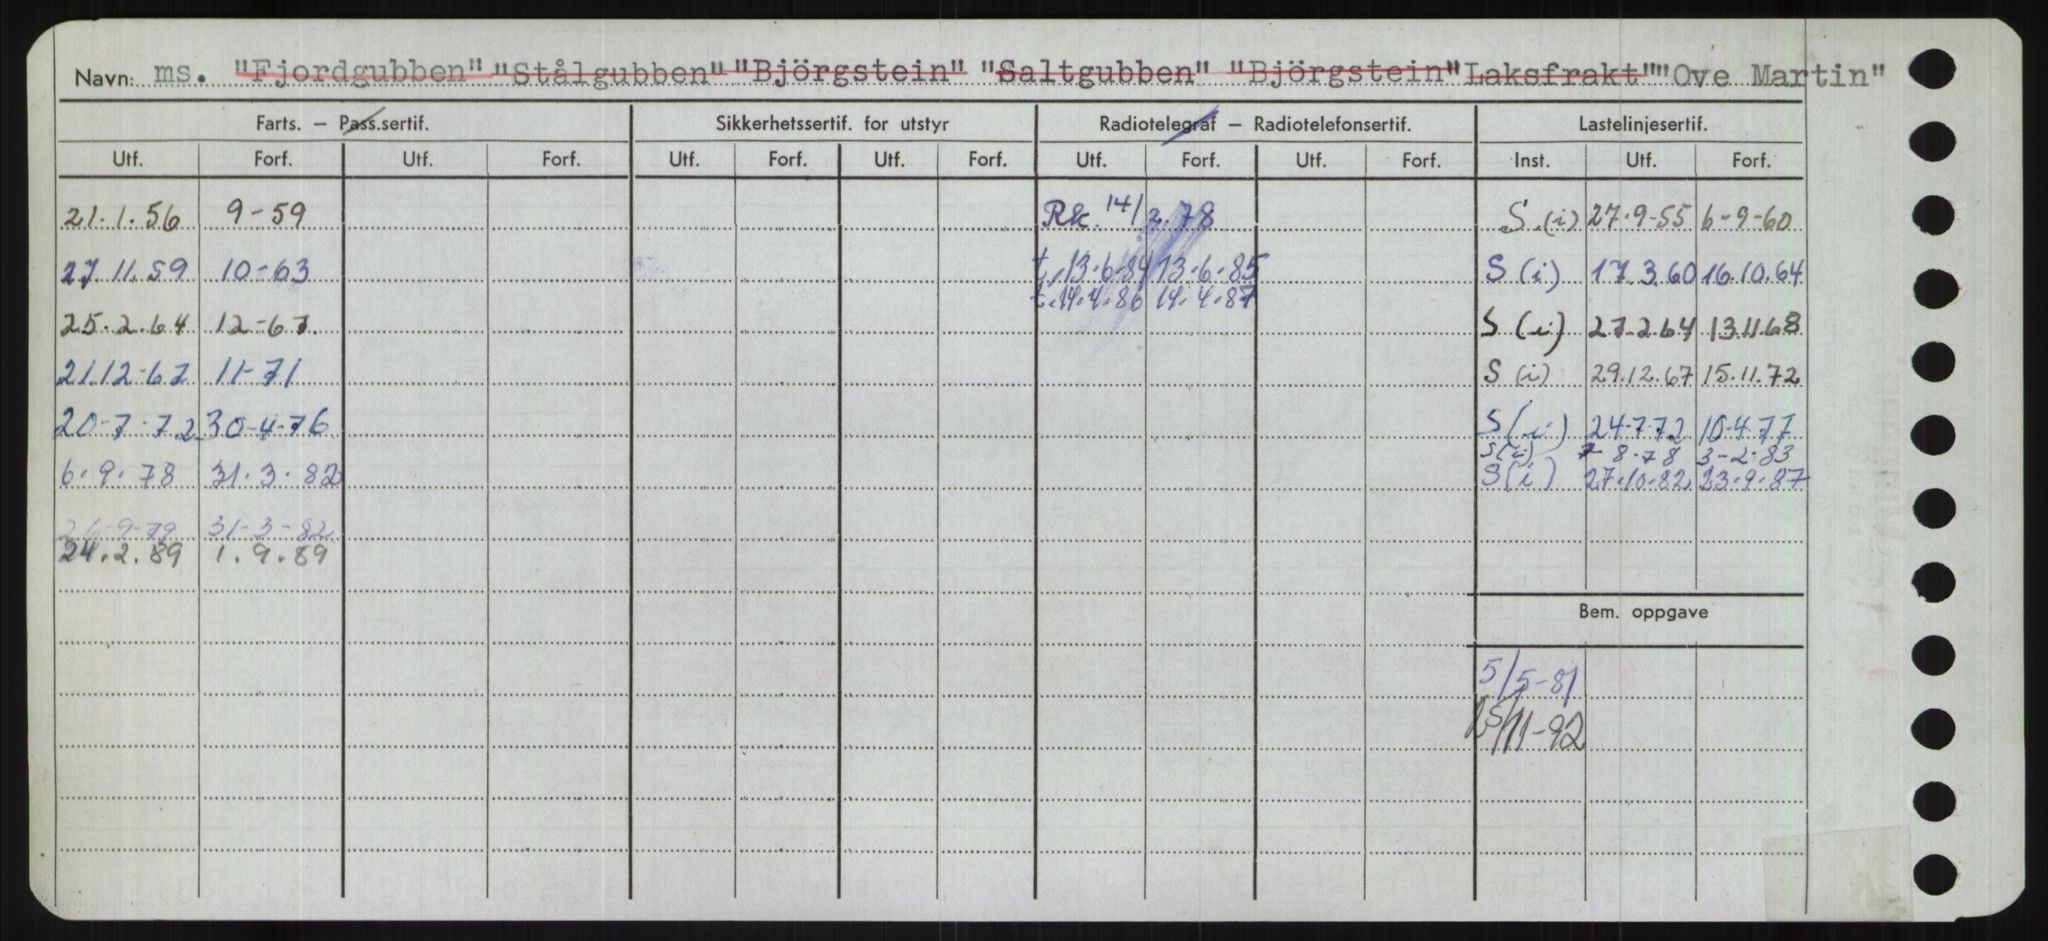 Navn: ms. "Fjordgubben" "Stålgubben" "Björgstein" "Saltgubben" "Björgstein" Laksfrakt" "Ove Martin"
Farts. – Pass.sertif. Sikkerhetssertif. for utstyr Radiotelegraf – Radiotelefonsertif. Lastelinjesertif.
Utf. Forf. Utf. Forf. Utf. Forf. Utf. Forf. Utf. Forf. Utf. Forf. Inst. Utf. Forf.
21.1.56 9-59 Rk. 14/2.78 S.(i) 27.9-55 6-9-60
27 11.59 10-63 t.13.6.84 13.6.85 S (i) 17.3.60 16.10.64
t.14.4.86 14.4.87
25.2.64 12-67. S (i) 27.2.64 13.11.68
21.12-67 11-71 S (i) 29.12.67 15.11.72
20-7-72 30-4-76 S (i) 24.7.72 10.4.77
S (i) 7-8-78 3-2-83
6.9.78 31.3.82 S (i) 27.10.82 23.9.87
26-9-79 31-3-82
24.2.89 1.9.89
Bem. oppgave
5/5-81
25/11-92